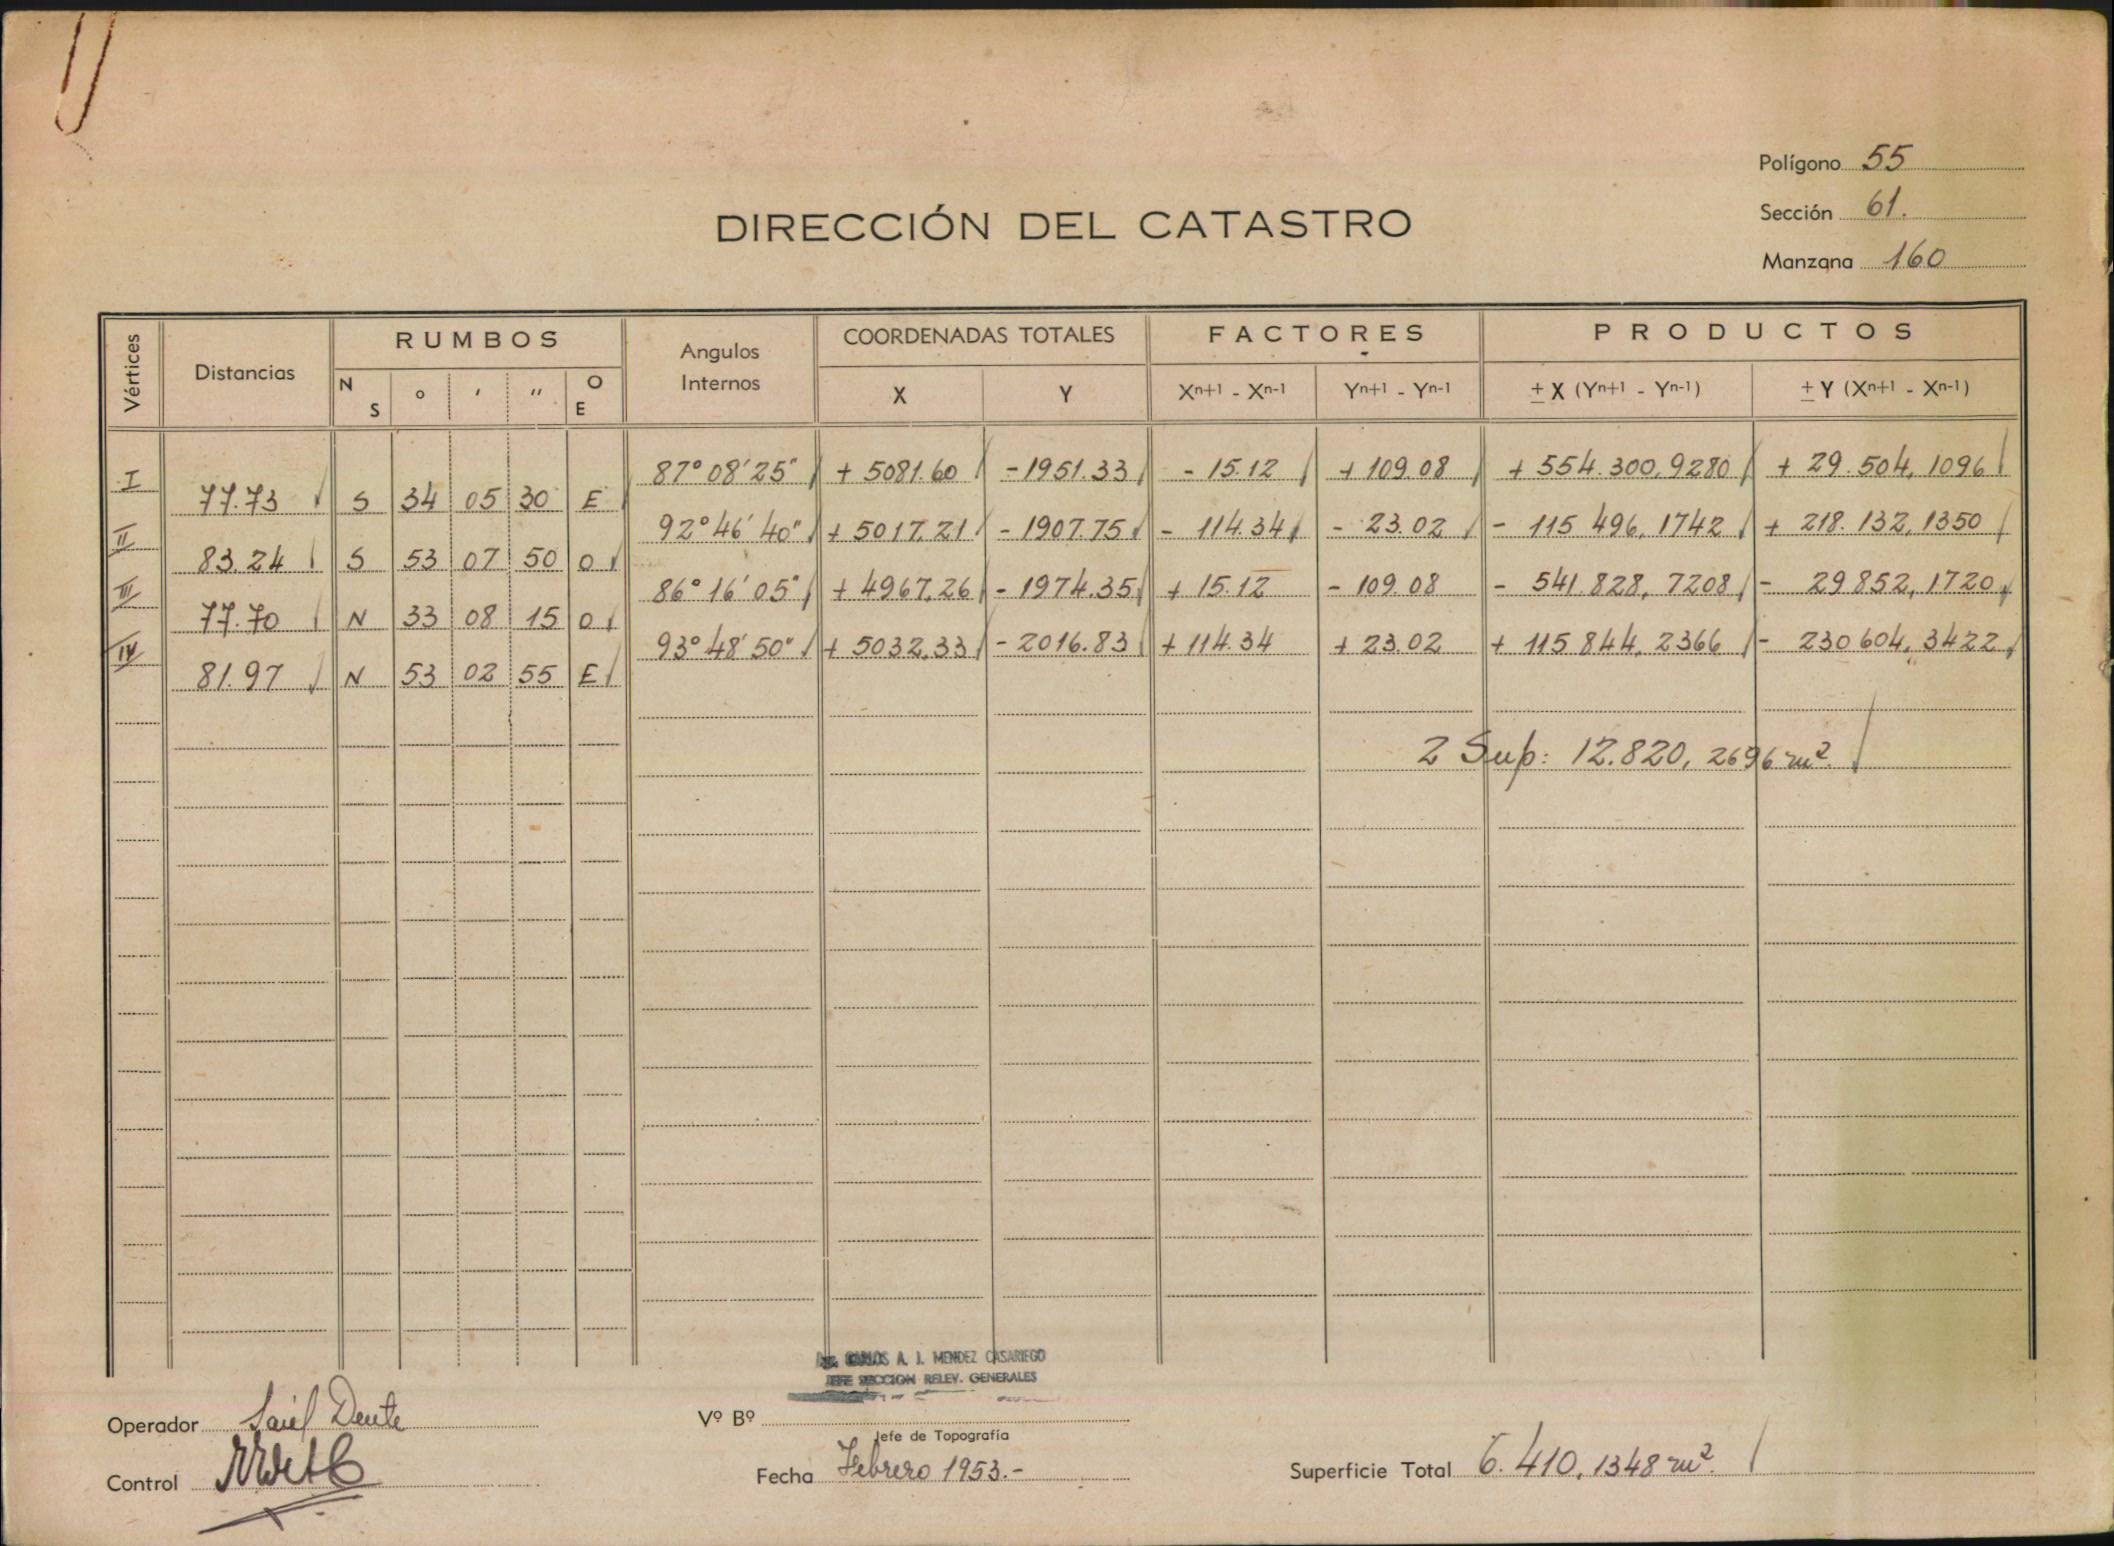 Polígono 55
Sección 61.
Manzana 160
DIRECCIÓN DEL CATASTRO
Vértices Distancias RUMBOS Angulos Internos COORDENADAS TOTALES FACTORES PRODUCTOS
N S ° ' '' O E X Y Xn+1 - Xn-1 Yn+1 - Yn-1 ± X (Yn+1 - Yn-1) ± Y (Xn+1 - Xn-1)
I 87° 08' 25" + 5081.60 - 1951.33 - 15.12 + 109.08 + 554.300,9280 + 29.504,1096
77.73 S 34 05 30 E
II 92° 46' 40" + 5017.21 - 1907.75 - 114.34 - 23.02 - 115 496,1742 + 218.132,1350
83.24 S 53 07 50 O
III 86° 16' 05" + 4967.26 - 1974.35 + 15.12 - 109.08 - 541.828,7208 - 29852,1720
77.70 N 33 08 15 O
IV 93° 48' 50" + 5032.33 - 2016.83 + 114.34 + 23.02 + 115 844,2366 - 230 604,3422
81.97 N 53 02 55 E
2 Sup: 12.820,2696 m².
CARLOS A. J. MENDEZ CASARIEGO
JEFE SECCION RELEV. GENERALES
Operador Dente
Vº Bº
Jefe de Topografía
Control
Fecha Febrero 1953.-
Superficie Total 6.410,1348 m².